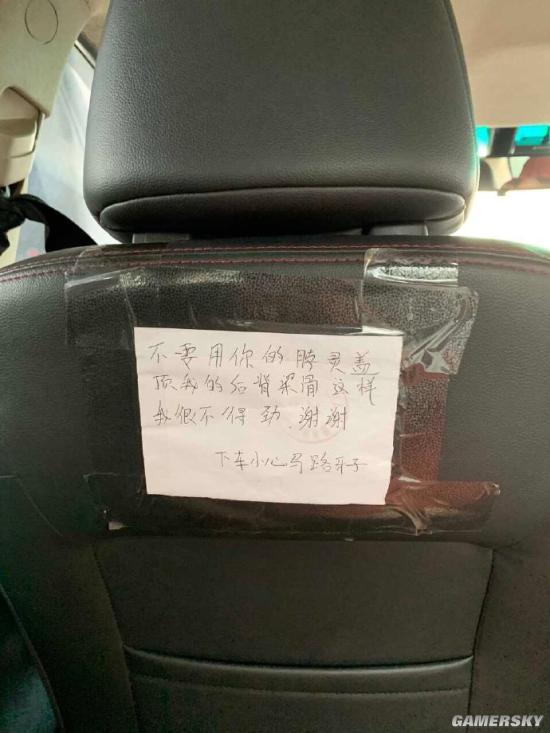 不要用你的脖灵盖
顶我的后脊梁骨这样
我很不得劲.谢谢
下车小心马路牙子
GAMERSKY